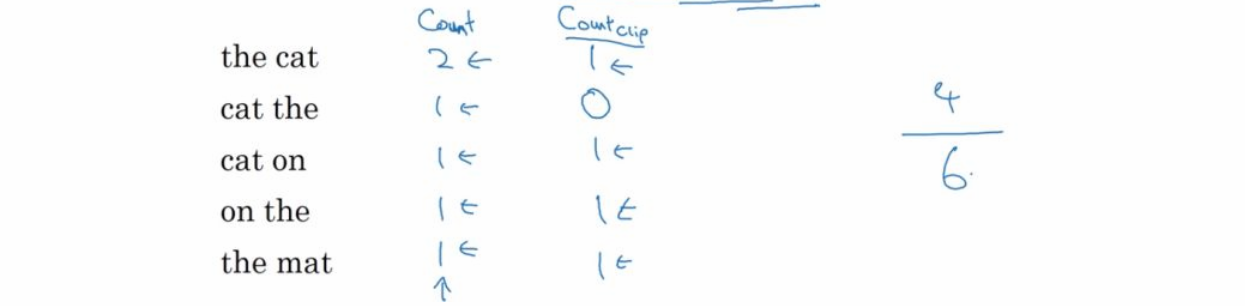 Count Count clip
the cat 2 ← 1 ←
cat the 1 ← 0
cat on 1 ← 1 ←
on the 1 ← 1 ←
the mat 1 ← 1 ←
↑
4
6